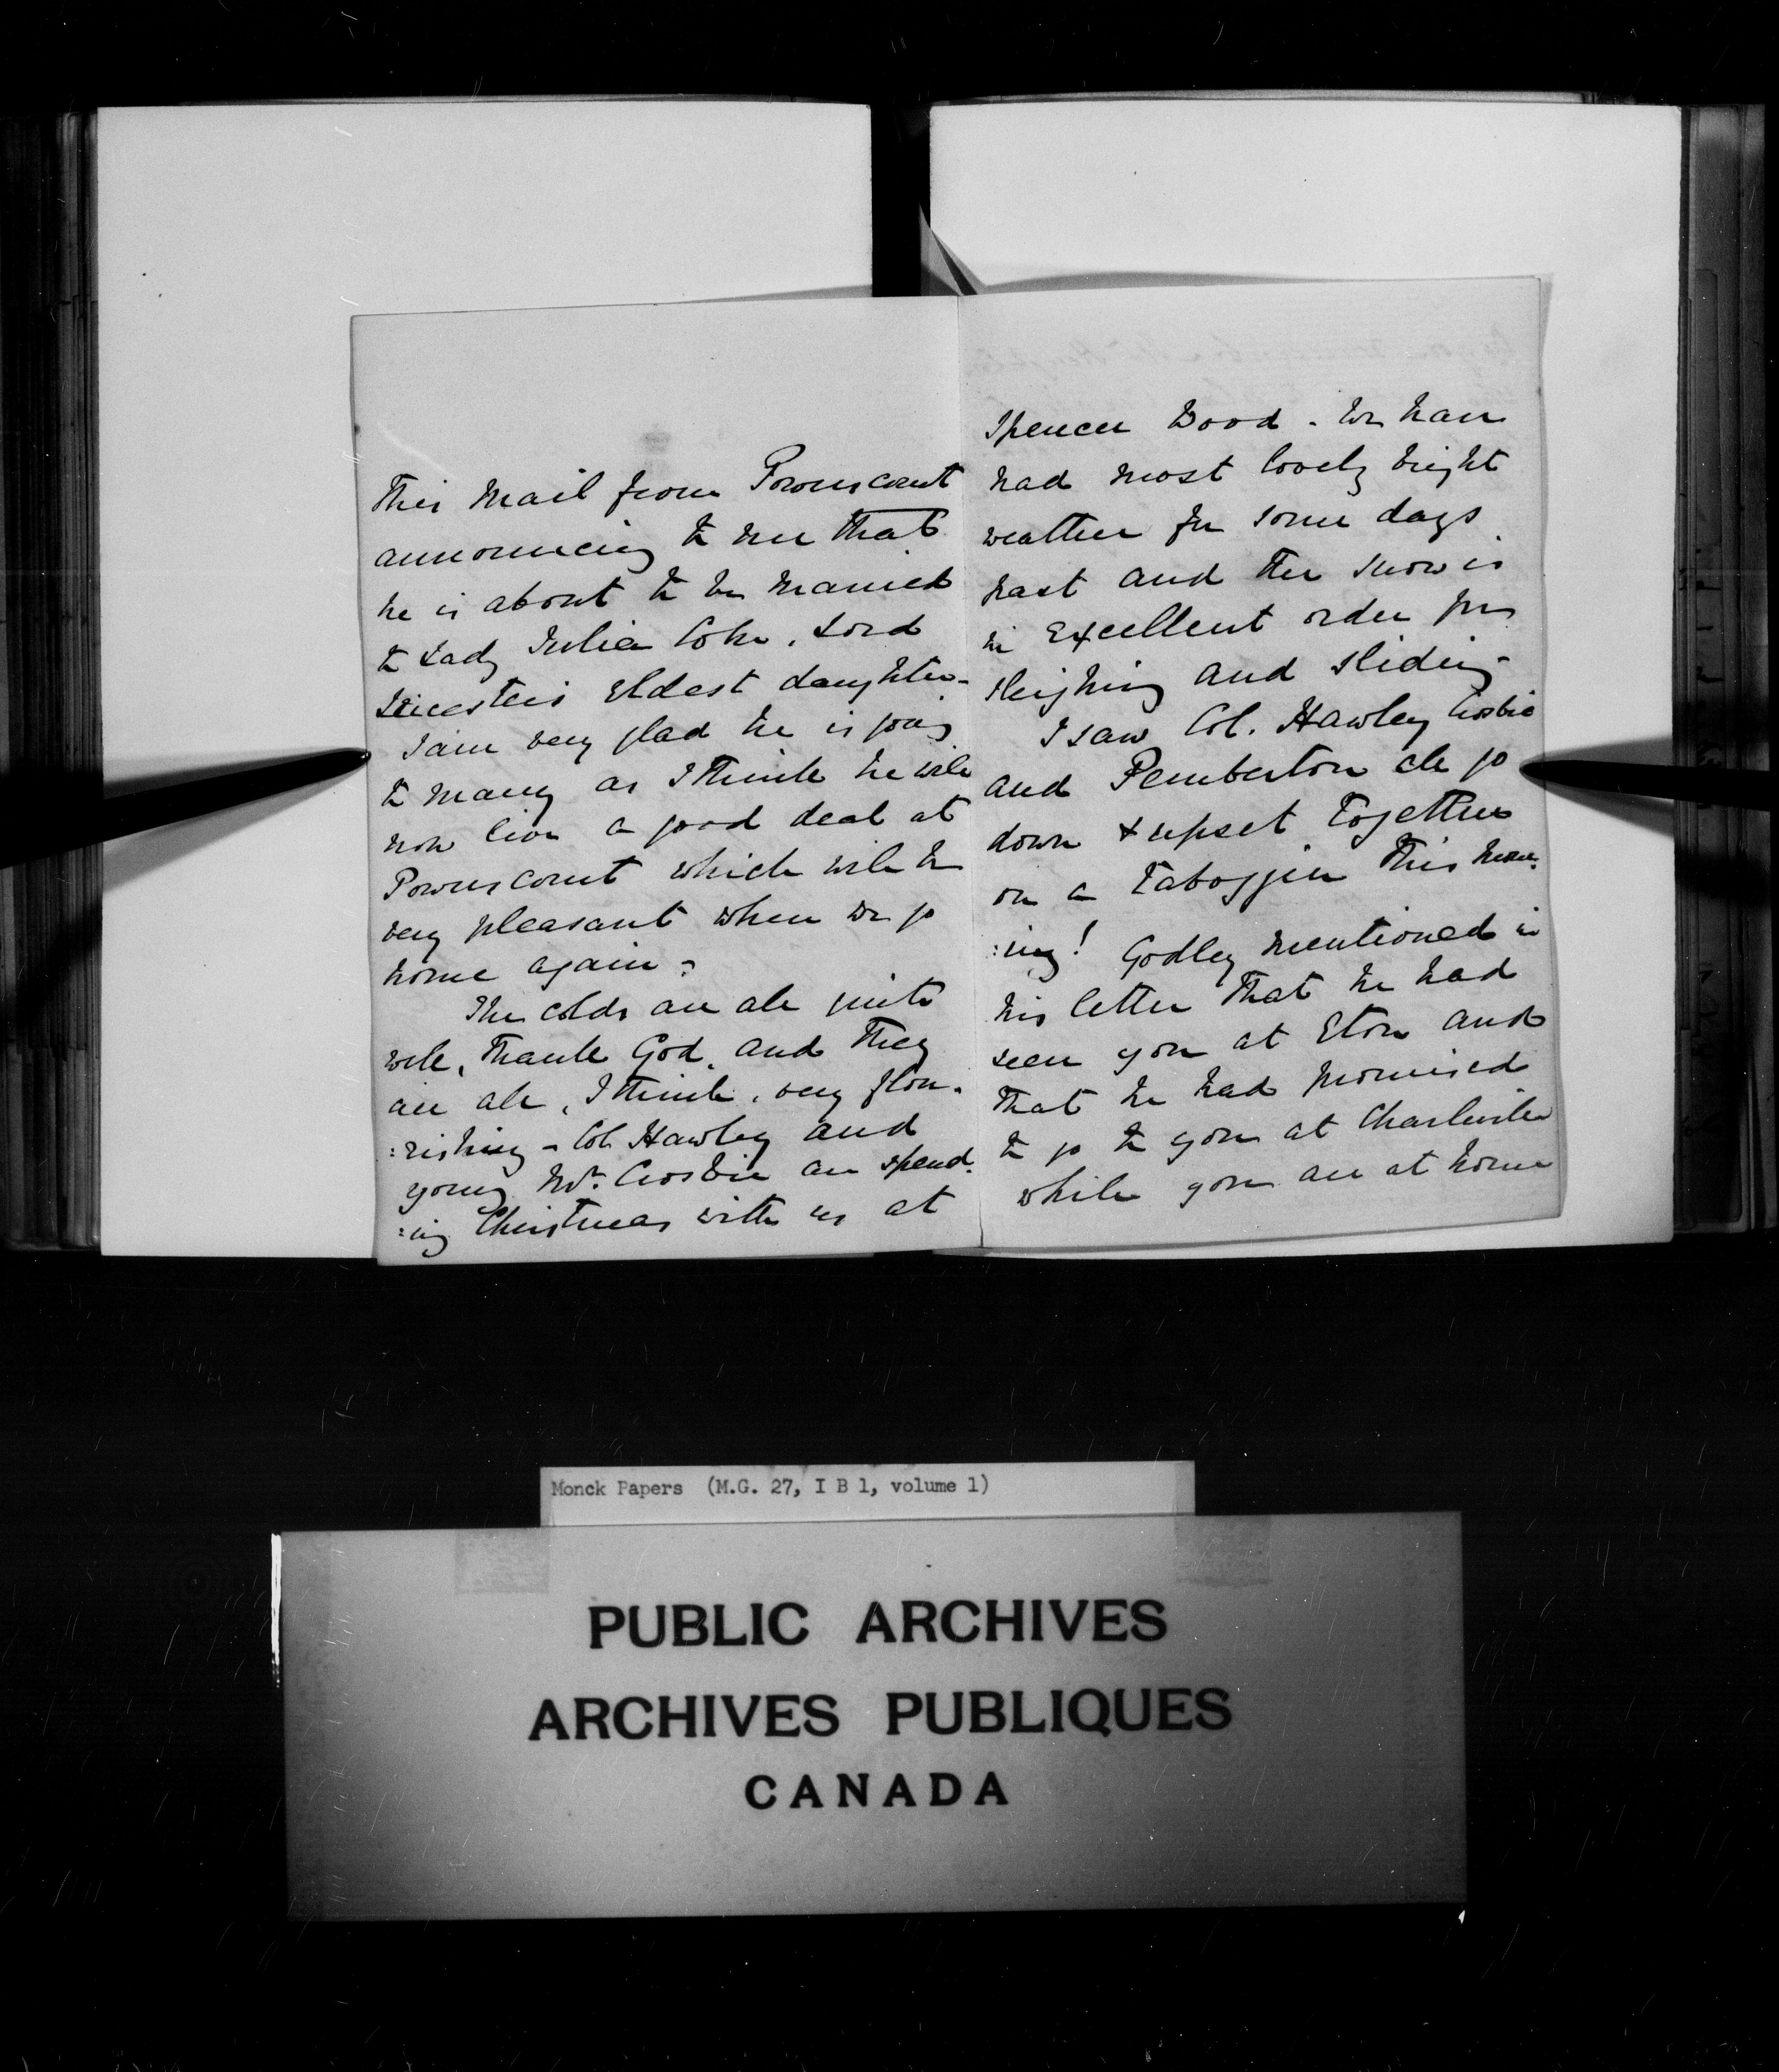 this mail from Powerscourt
announcing to me that
he is about to be married
to Lady Julia Coke, Lord
Leicester's eldest daughter -
I am very glad he is going
to marry as I think he will
now live a good deal at
Powerscourt which will be
very pleasant when we go
home again -
The colds are all quite
well, thank God, and they
are all, I think, very flou-
:rishing - Col. Hawley and
young Mr. Crosbie are spend-
:ing Christmas with us at
Spencer Wood - We have
had most lovely bright
weather for some days
past and the snow is
in excellent order for
sleighing and sliding -
I saw Col. Hawley Crosbie
and Pemberton all go
down & upset together
on a Taboggin this morn-
:ing! Godley mentioned in
his letter that he had
seen you at Eton and
that he had promised
to go to you at Charleville
while you are at home
Monck Papers (M.G. 27, I B 1, volume 1)
PUBLIC ARCHIVES
ARCHIVES PUBLIQUES
CANADA